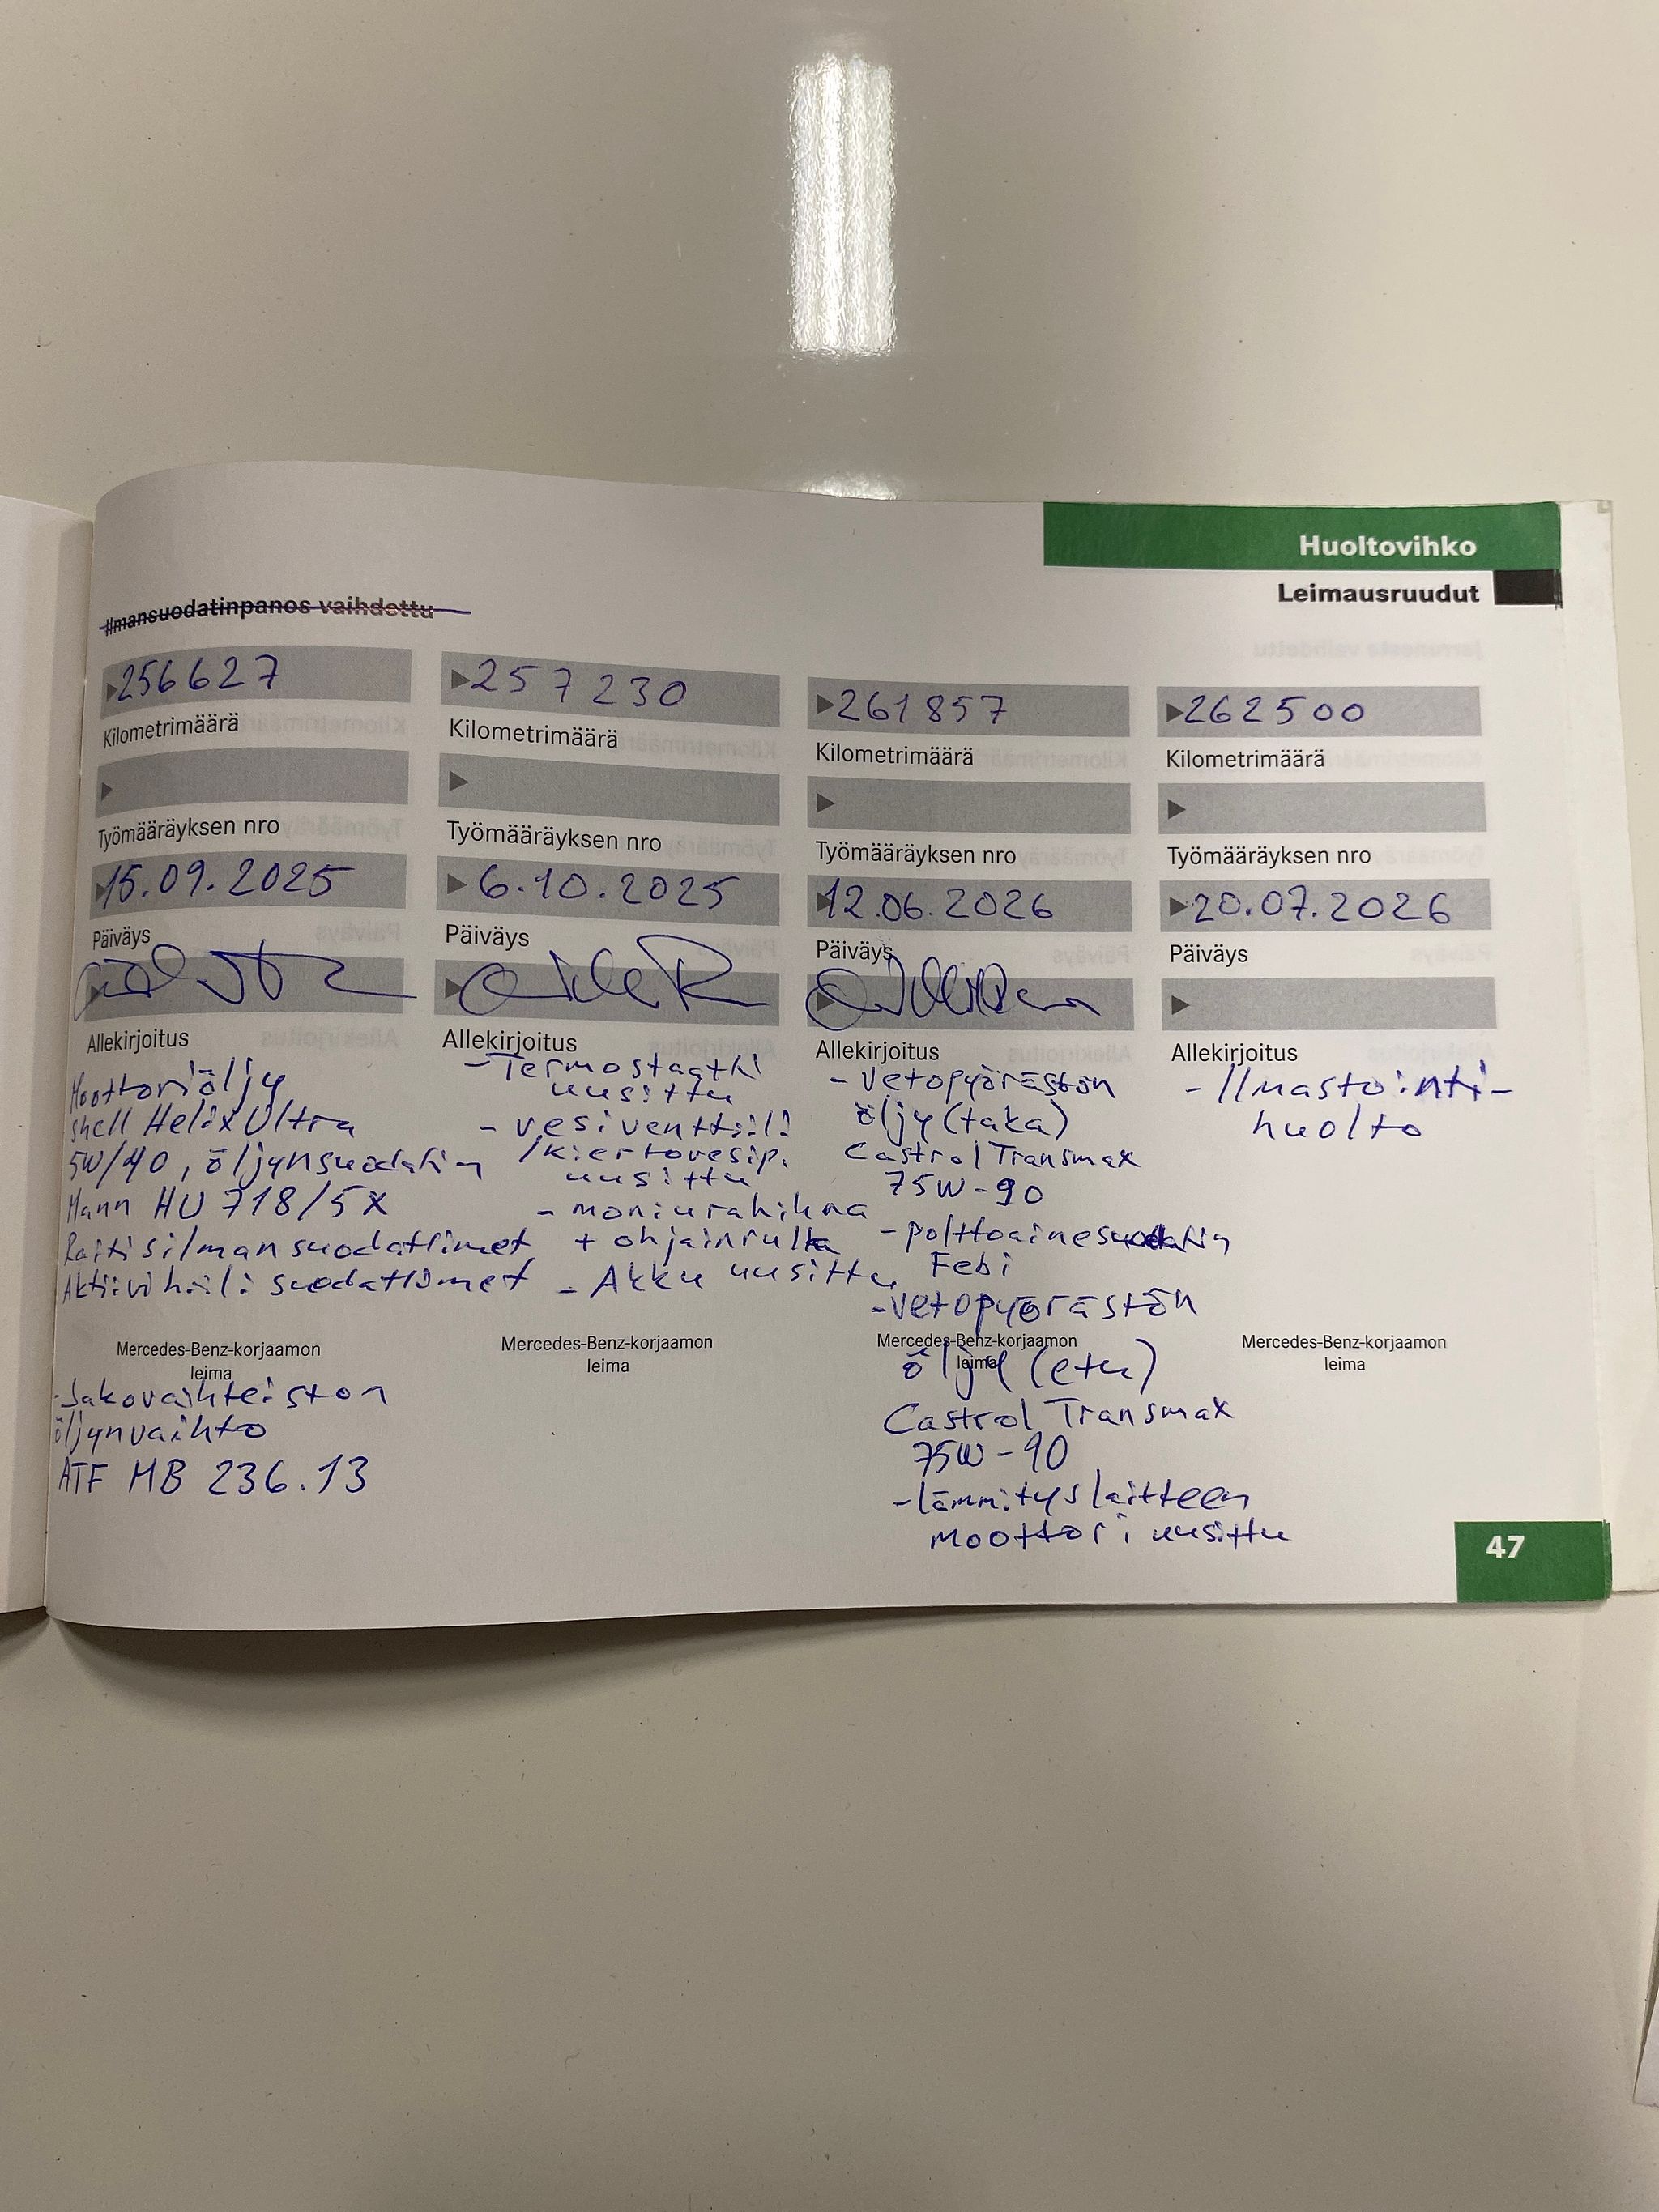 Huoltovihko
Leimausruudut
Ilmansuodatinpanos vaihdettu
256627
Kilometrimäärä
Työmääräyksen nro
15.09.2025
Päiväys
Allekirjoitus
Moottoriöljy
shell Helix Ultra
5W/40, öljynsuodatin
Mann HU 718/5X
Raitisilmansuodattimet
Aktiivihiili suodattimet
Mercedes-Benz-korjaamon
leima
-Jakovaihteiston
öljynvaihto
ATF MB 236.13
257230
Kilometrimäärä
Työmääräyksen nro
6.10.2025
Päiväys
Allekirjoitus
-Termostaatti
uusittu
- vesiventtiili
/kiertovesip.
uusittu
- moniurahihna
+ ohjainrulla
- Akku uusittu
Mercedes-Benz-korjaamon
leima
261857
Kilometrimäärä
Työmääräyksen nro
12.06.2026
Päiväys
Allekirjoitus
- Vetopyörästön
öljy (taka)
Castrol Transmax
75W-90
- polttoainesuodatin
Febi
-Vetopyörästön
Mercedes-Benz-korjaamon
leima
öljy (etu)
Castrol Transmax
75W-90
-lämmityslaitteen
moottori uusittu
262500
Kilometrimäärä
Työmääräyksen nro
20.07.2026
Päiväys
Allekirjoitus
- Ilmastointi-
huolto
Mercedes-Benz-korjaamon
leima
47